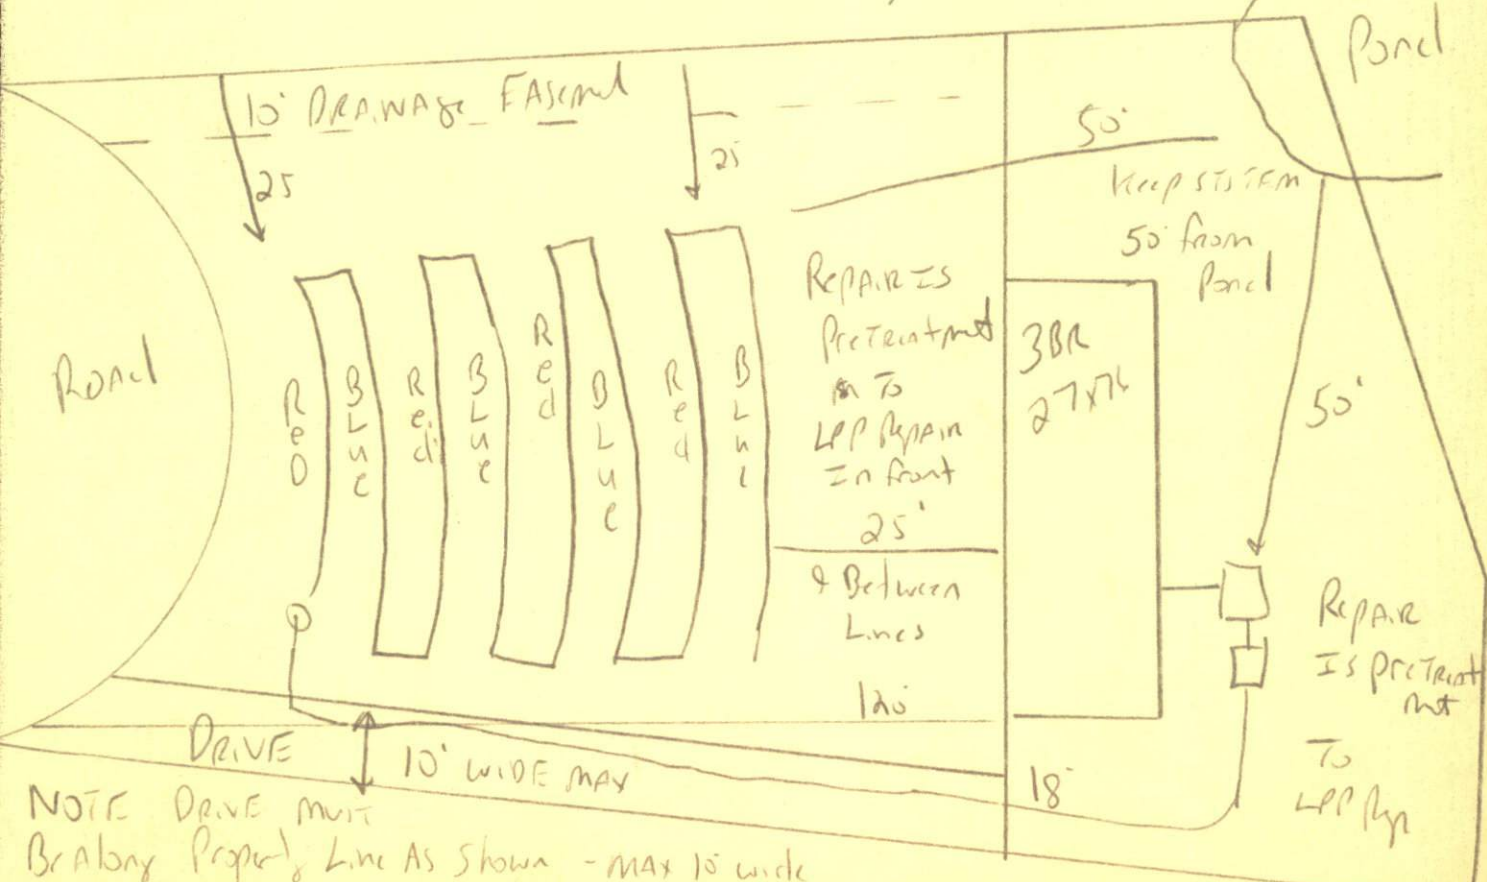 Pond
10' DRAINAGE EASEMENT
50'
25
25
Keep SYSTEM
50' from
Pond
Road
Red
Blue
Red
Blue
Red
Blue
Red
Blue
Repair IS
Pretreatment
To
LPP Repair
In front
25'
& Between
Lines
3BR
27x76
50'
Repair
Is pretreat
ment
To
LPP Rep
120'
18'
DRIVE
10' WIDE MAX
NOTE DRIVE MUST
Be Along Property Line As Shown - MAX 10' wide